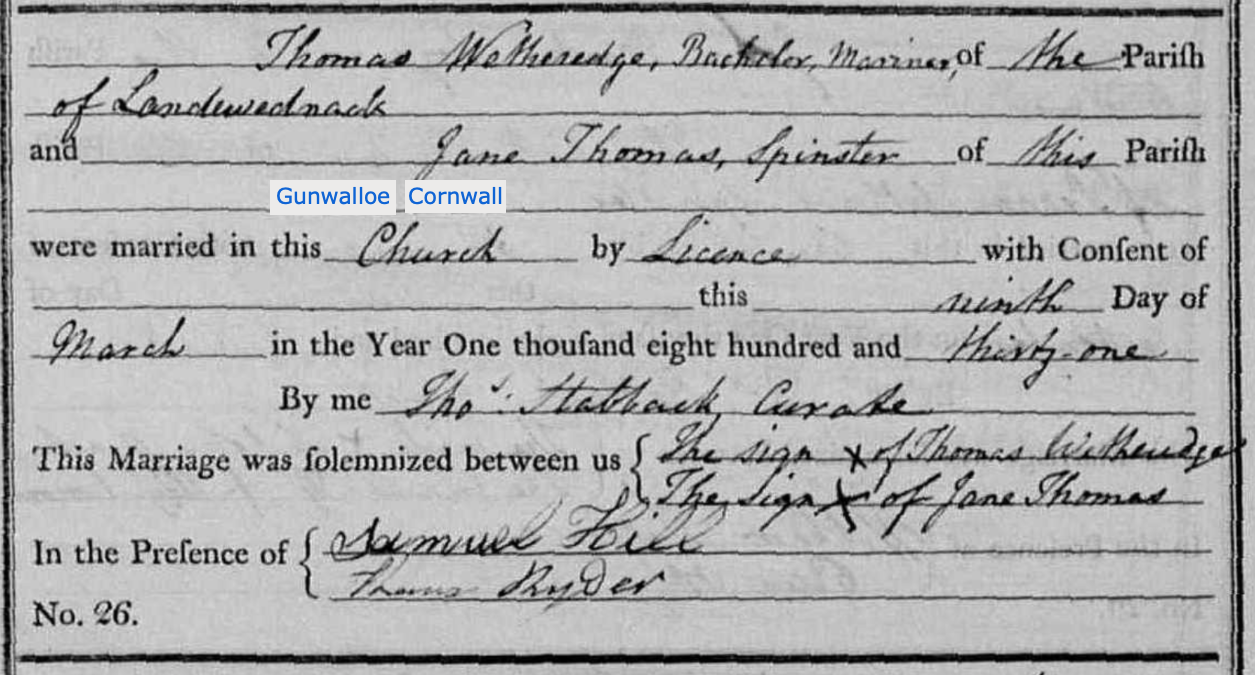 Thomas Wetheredge, Bachelor, Mariner, of the Pariſh
of Landewednack
and Jane Thomas, Spinster of this Pariſh
Gunwalloe Cornwall
were married in this Church by Licence with Conſent of
this ninth Day of
March in the Year One thouſand eight hundred and thirty-one
By me Thos: Stabback, Curate
This Marriage was ſolemnized between us { The sign X of Thomas Wetheredge
The Sign X of Jane Thomas
In the Preſence of { Samuel Hill
Thomas Ryder
No. 26.